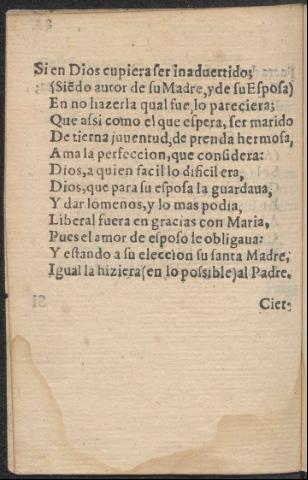 Si en Dios cupiera ser inaduertido;
(Siẽdo autor de su Madre, y de su Esposa)
En no hazerla qual fue, lo pareciera;
Que assi como el que espera, ser marido
De tierna juuentud, de prenda hermosa,
Ama la perfeccion, que considera:
Dios, a quien facil lo dificil era,
Dios, que para su esposa la guardaua,
Y dar lo menos, y lo mas podia,
Liberal fuera en gracias con Maria,
Pues el amor de esposo le obligaua:
Y estando a su eleccion su santa Madre,
Igual la hiziera (en lo possible) al Padre.
Cier-